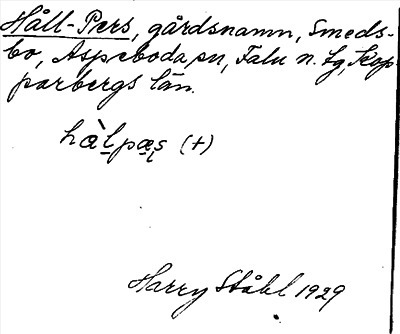 Håll-Pers, gårdsnamn, Smeds-
bo, Aspeboda sn, Falu n. tg, Kop-
parbergs län.
hàlpæs (+)
Harry Ståhl 1929